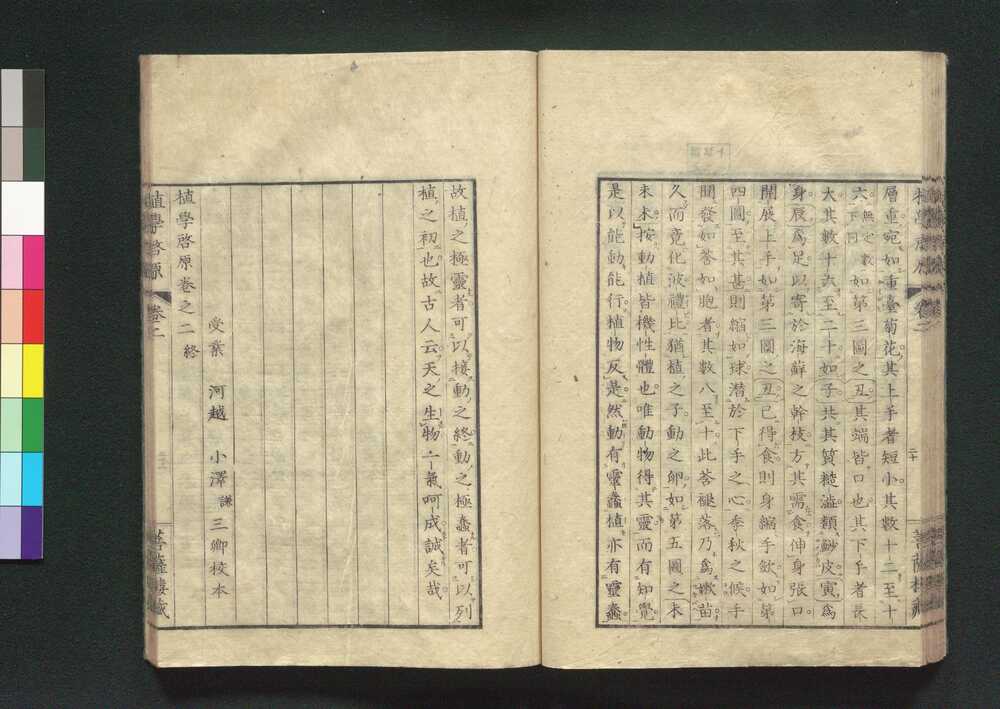 層重宛如重臺菊花其上手者短小其數十二至十
六無定數下同如第三圖之丑其端皆口也其下手者長
大其數十六至二十如子共其質糙澁類鯊皮寅爲
身辰爲足以寄於海蘚之幹枝方其需食伸身張口
開展上手如第三圖之丑已得食則身縮手斂如第
四圖至其甚則縮如球潛於下手之心季秋之候手
間發如荅如胞者其數八至十此荅褪落乃爲嫩苗
久而竟化波禮比猶植之子動之卵如第五圖之未
來未按動植皆機性體也唯動物得其靈而有知覺
是以能動能行植物反是然動有靈蠢植亦有靈蠢
故植之極靈者可以接動之終動之極蠢者可以列
植之初也故古人云天之生物一氣呵成誠矣哉
受業 河越 小澤謙三卿校本
植學啓原卷之二終
植學啓原 卷之二 菩薩樓藏